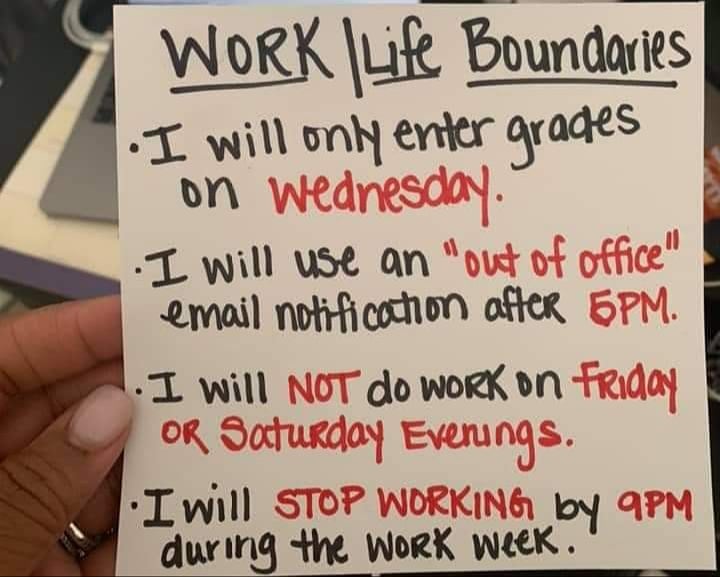 WORK | Life Boundaries
· I will only enter grades
on Wednesday.
· I will use an "out of office"
email notification after 5PM.
· I will NOT do WORK on FRiday
OR SatuRday Evenings.
· I will STOP WORKING by 9PM
during the WORK WeeK.